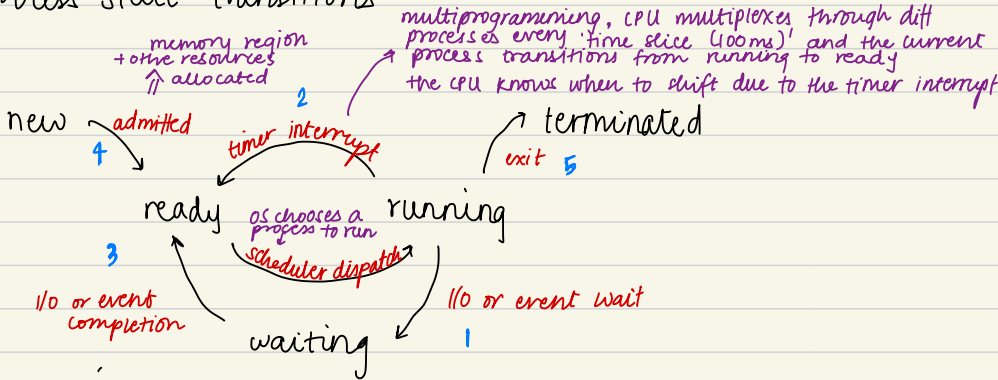 process state transitions
multiprogramming, CPU multiplexes through diff
processes every 'time slice (100ms)' and the current
process transitions from running to ready
the CPU knows when to shift due to the timer interrupt
memory region
+ other resources
allocated
2
new
admitted
4
timer interrupt
terminated
exit
5
ready
os chooses a
process to run
running
scheduler dispatch
3
I/O or event
completion
I/O or event wait
waiting
1